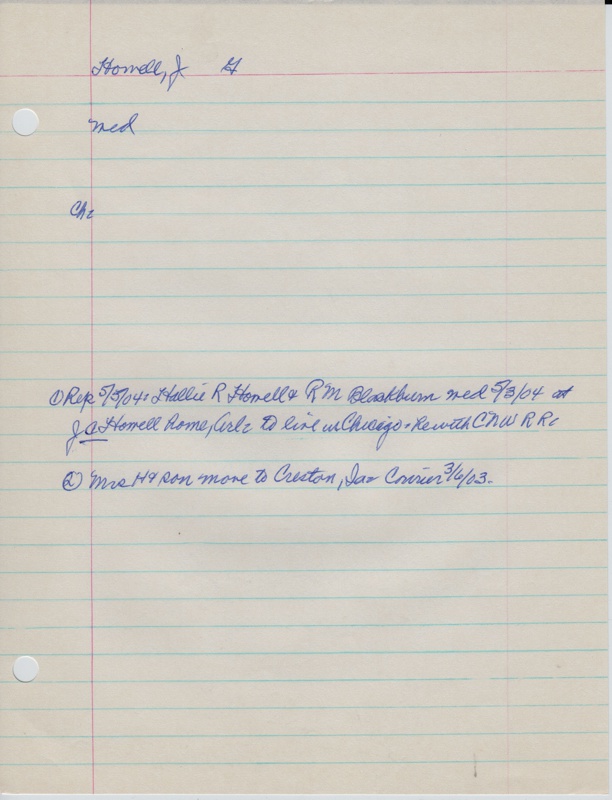 Howell, J G
Med
Ch:
① Rep 5/5/04: Hallie R Howell & R M Blackburn med 5/3/04 at
J A Howell home, Arl: to live in Chicago. He with C N W R R:
② Mrs H & son move to Creston, Ia= Courier 3/6/03.